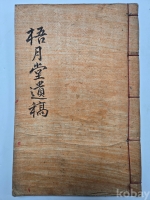 梧月堂遺稿
kobay